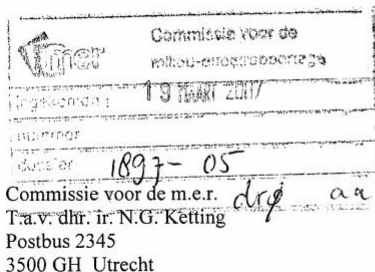 mer
Commissie voor de
milieu-effectrapportage
ingekomen :
19 MAART 2007
nummer
dossier 1897-05
Commissie voor de m.e.r.
T.a.v. dhr. ir. N.G. Ketting
Postbus 2345
3500 GH Utrecht